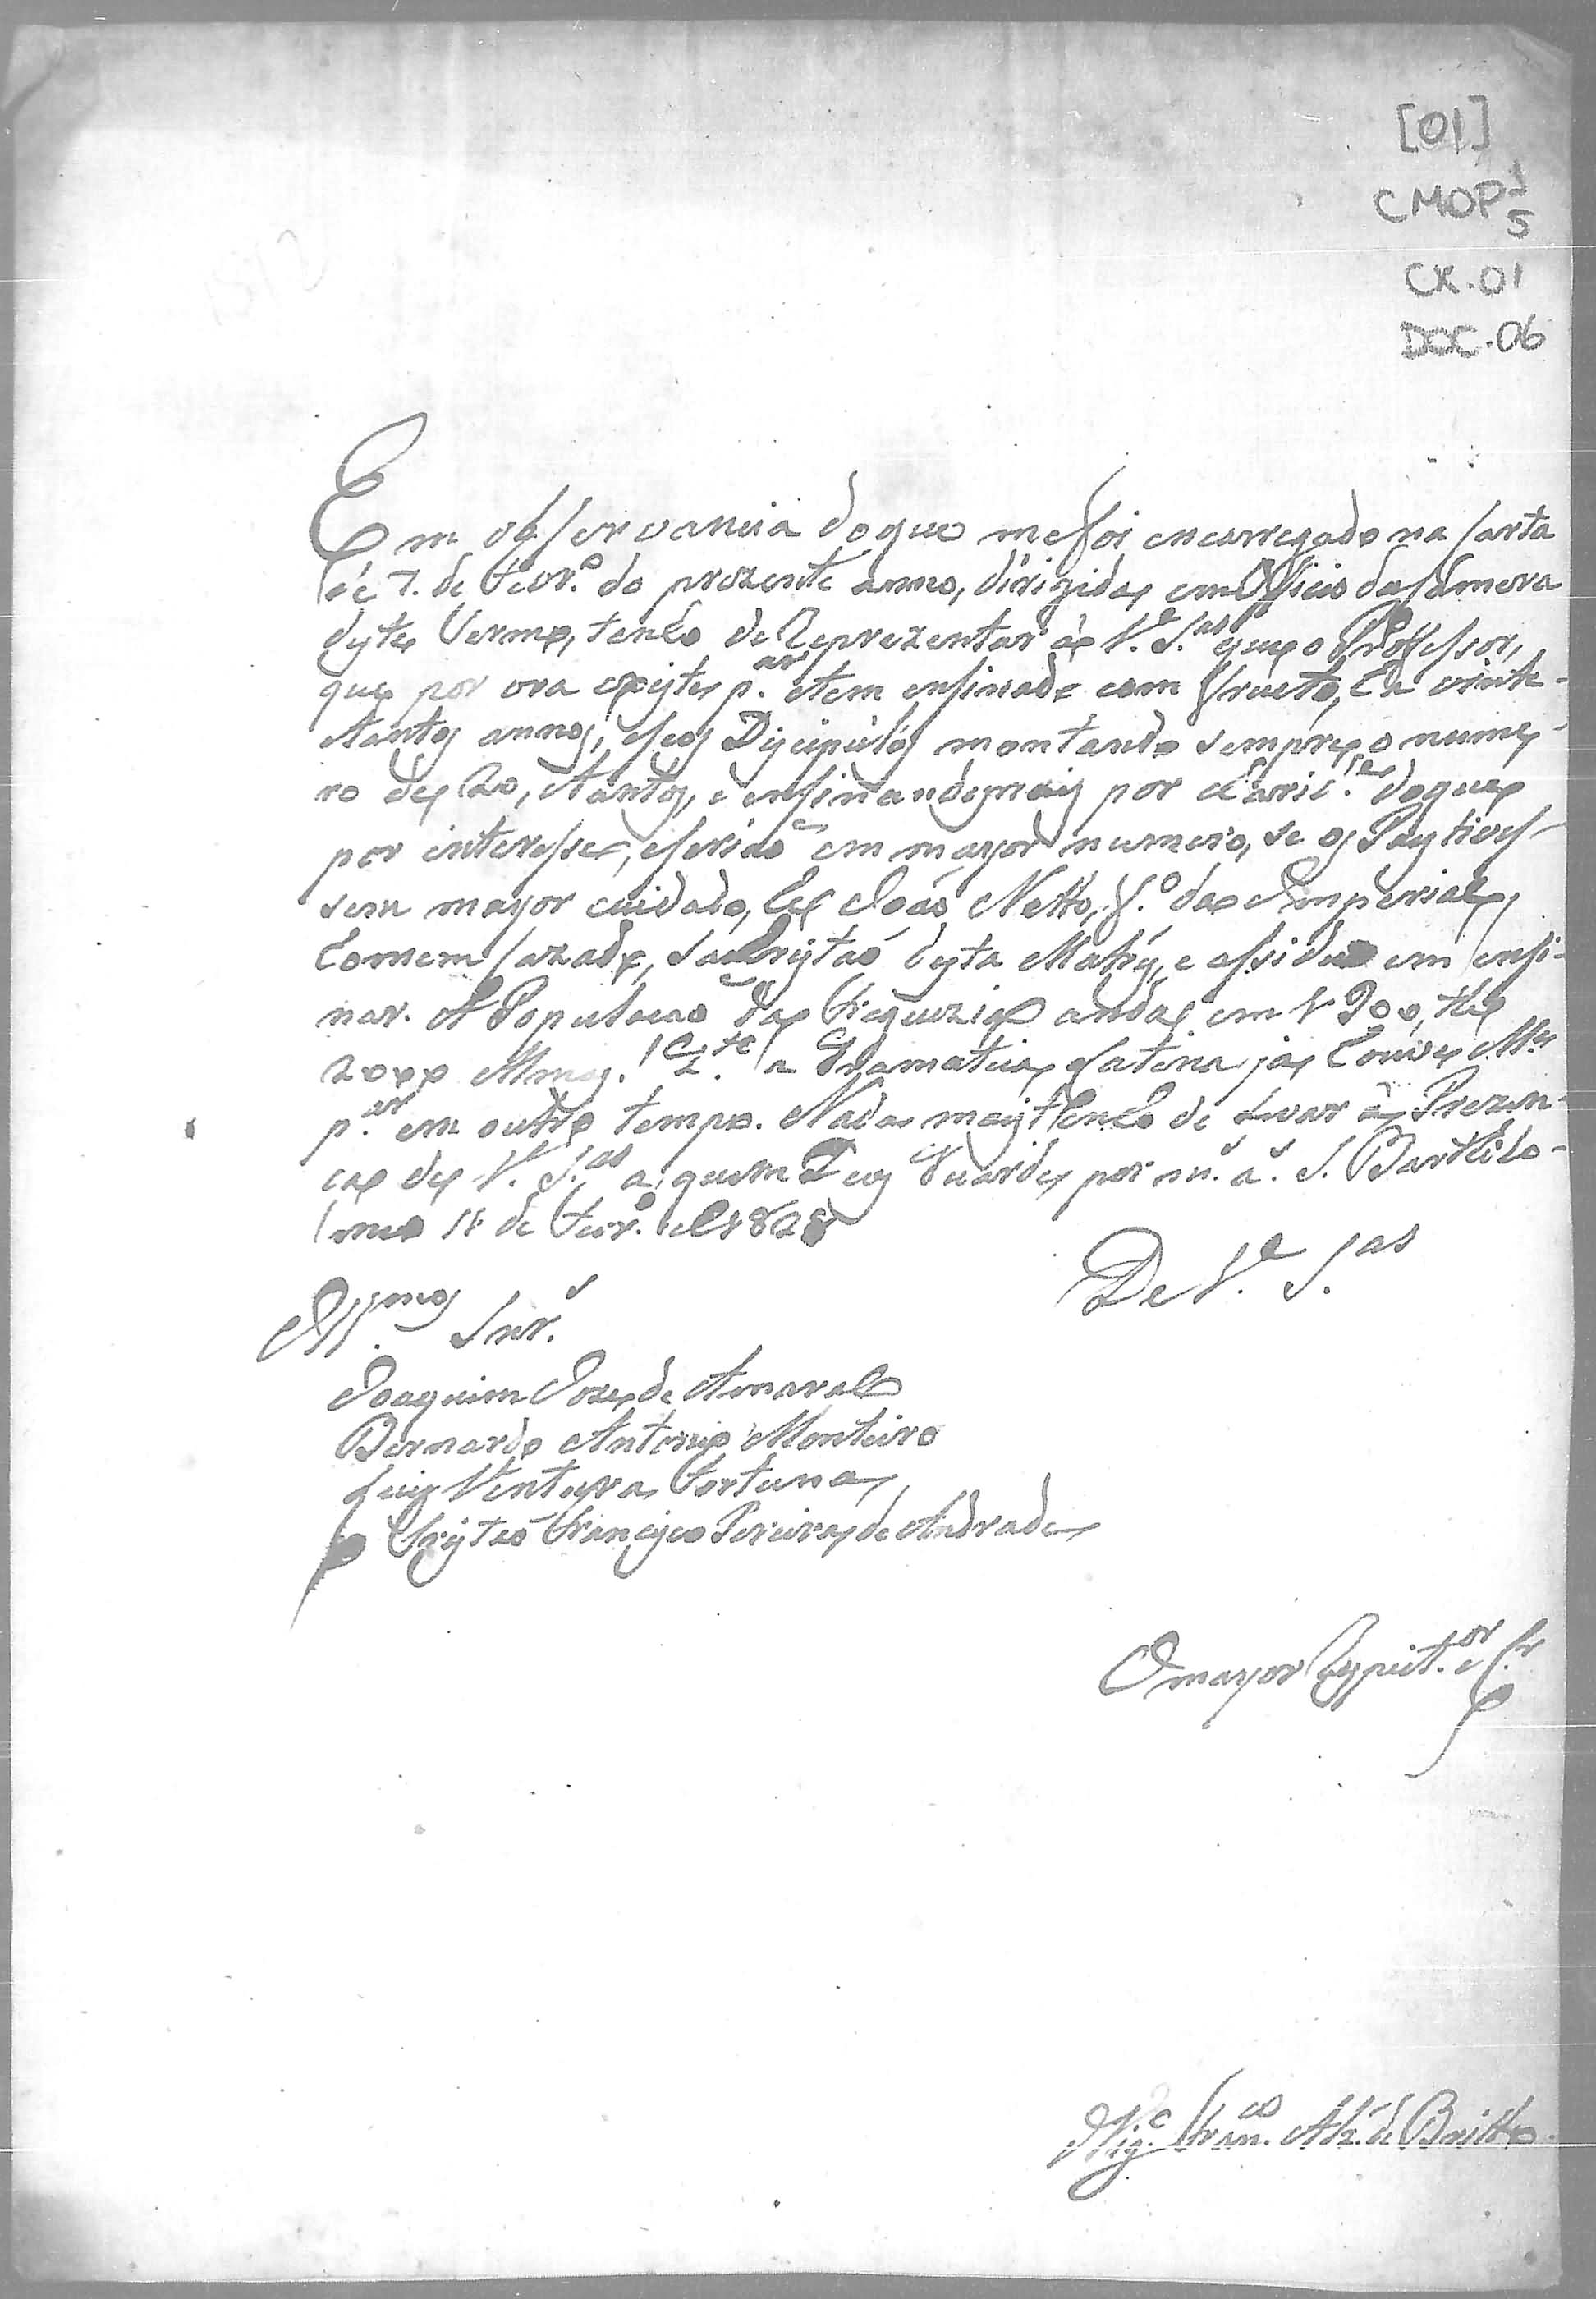 [01]
CMOP 1/5
CX. 01
DOC. 06
Em observancia do que me foi encarregado na Carta
de 7. de Fevr.º do prezente anno, dirigida em Officio da Camera
deste Termo, tenho de reprezentar à V.ᵉ S.ᵃˢ que o Professor,
que por ora existe p.ᵃʳ e tem ensinado com fructo, ha vinte
e tantos annos, e seos Discipulos montando sempre o nume-
ro de 20, e tantos, e ensinando mais por Carid.ᵉ do que
por interesse, e serião em mayor numero, se os Pays tives-
sem mayor cuidado, he João Netto, f.º da Imperial,
homem Cazado, Sacristão desta Matriz, e assiduo em ensi-
nar. A Populacão da Freguezia anda em 1900, the
2000 Almas. A Gramatica Latina ja houve M.ᵉˢ
p.ᵃʳ em outro tempo. Nada mais tenho de levar à Prezen-
ca de V. S.ᵃˢ a quem Deos Guarde por m.ˢ a.ˢ S. Bartholo-
meo 11 de Fevr.º de 1828
De V.ᵉ S.ᵃˢ
Ill.ᵐᵒˢ Snr.ˢ
Joaquim Joze de Amaral
Bernardo Antonio Monteiro
Luis Ventura Fortuna
Cristão Francisco Pereira de Andrade
O mayor respeit.ᵒʳ e Cr.
Mig.ᵉ Fran.ᶜᵒ Alz. de Britto